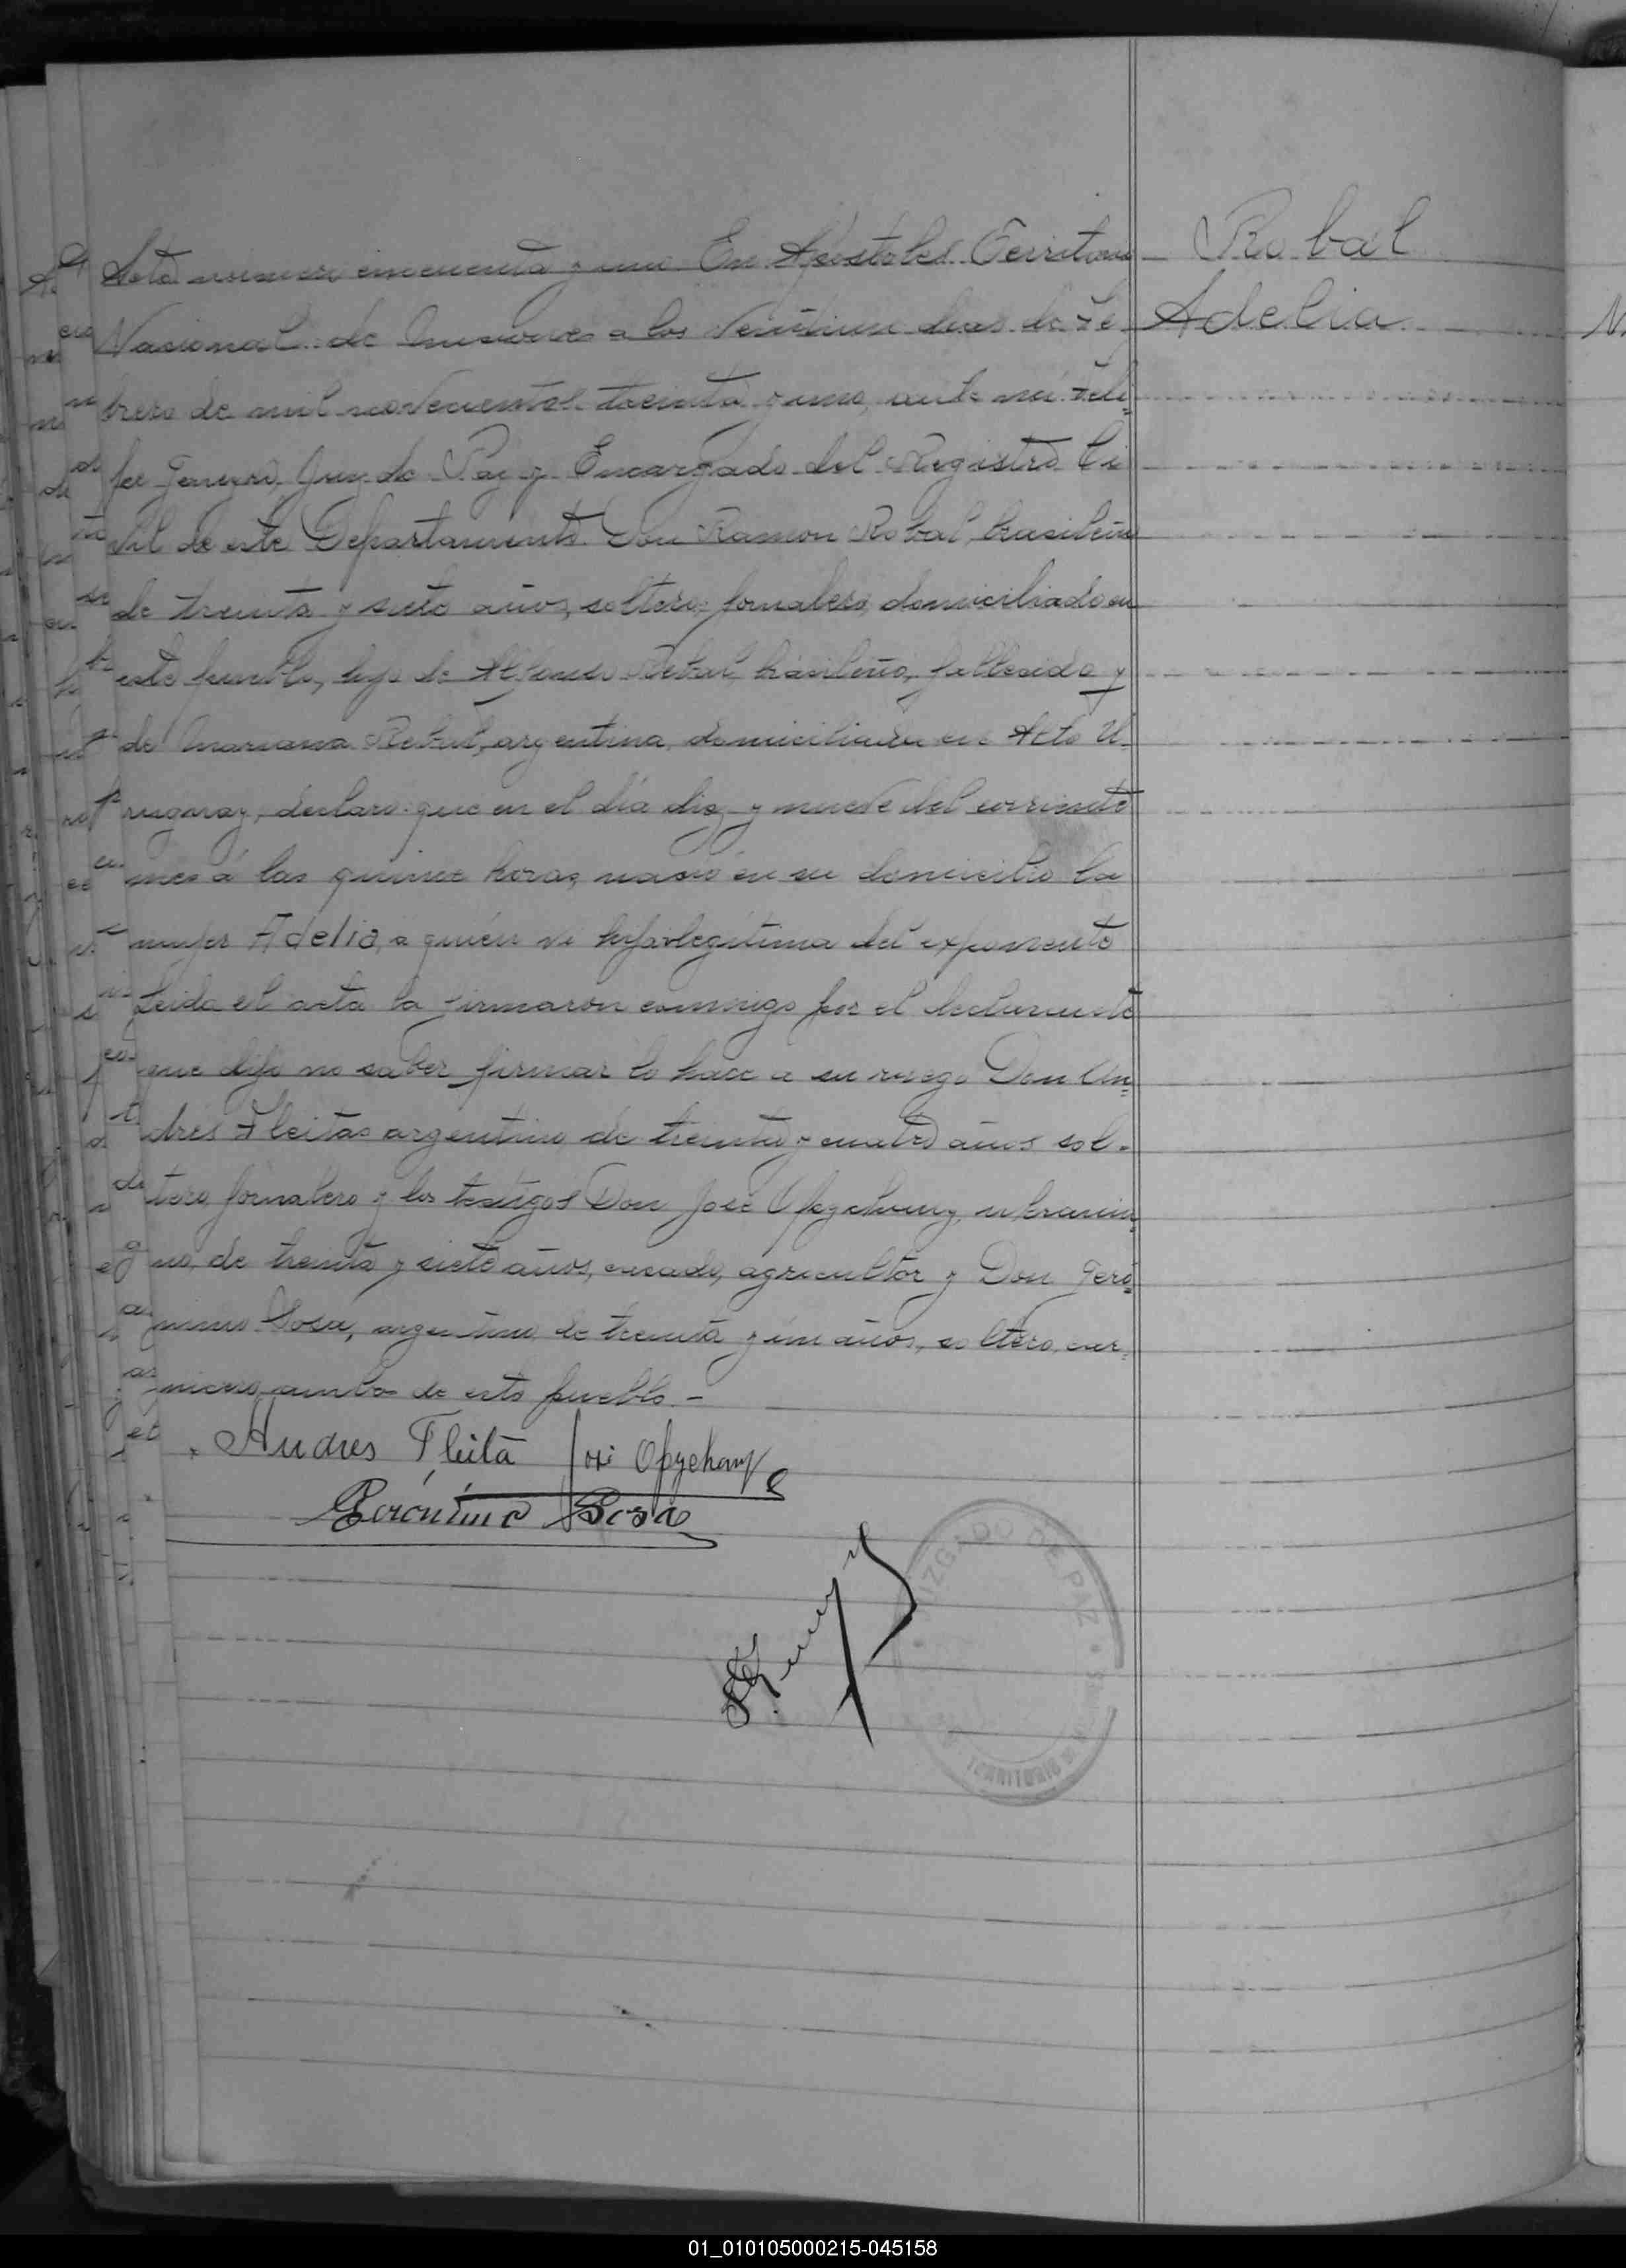 Robal
Adelia
Acta numero cincuenta y uno En Apostoles Territorio
Nacional de Misiones a los Veintiun dias de Fe
brero de mil novecientos treinta y uno, ante mi Feli=
pe Juez de Paz y Encargado del Registro Ci
vil de este Departamento Don Ramon Robal, brasileño
de treinta y siete años, soltero, jornalero, domiciliado en
este pueblo, hijo de Robal, brasileño, fallecido y
de Mariana Robal, argentina, domiciliada en Alto U
ruguay, declaro: que en el día diez y nueve del corriente
mes á las quince horas, nació en su domicilio la
mujer Adelia, a quién vi del exponente
Leida el acta la firmaron conmigo por el declarante
que dijo no saber firmar lo hace a su ruego Don An=
drés Fleitas argentino de treinta y cuatro años sol-
tero, jornalero y los testigos Don José ukrania
no, de treinta y siete años, casado, agricultor y Don Geró=
nimo Sosa, argentino de treinta y un años, soltero, car=
nicero, ambos de este pueblo. -
Andres Fleita José
Gerónimo Sosa
JUZGADO DE PAZ
TERRITORIO
01_010105000215-045158